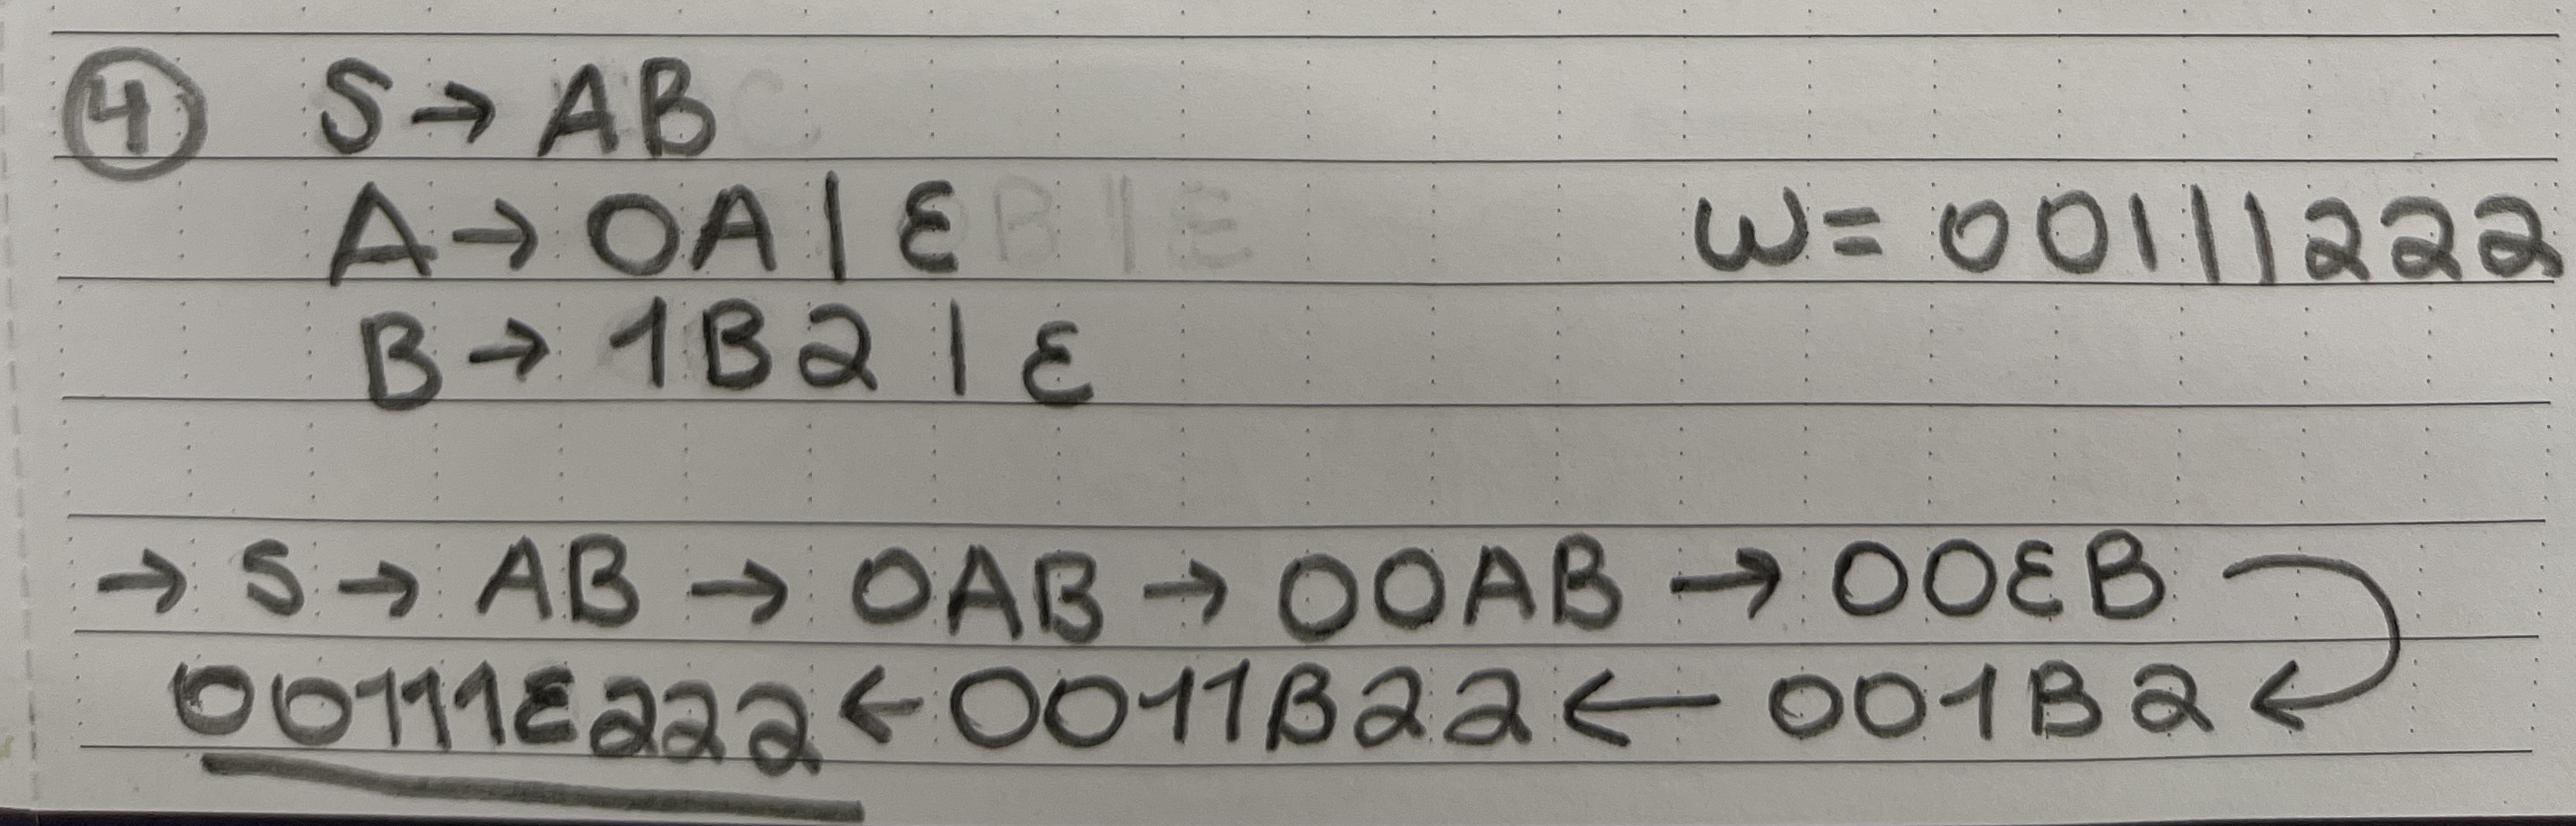 ④ S → AB
A → 0A | ε
w = 00111222
B → 1B2 | ε
→ S → AB → 0AB → 00AB → 00εB
00111ε222 ← 0011B22 ← 001B2